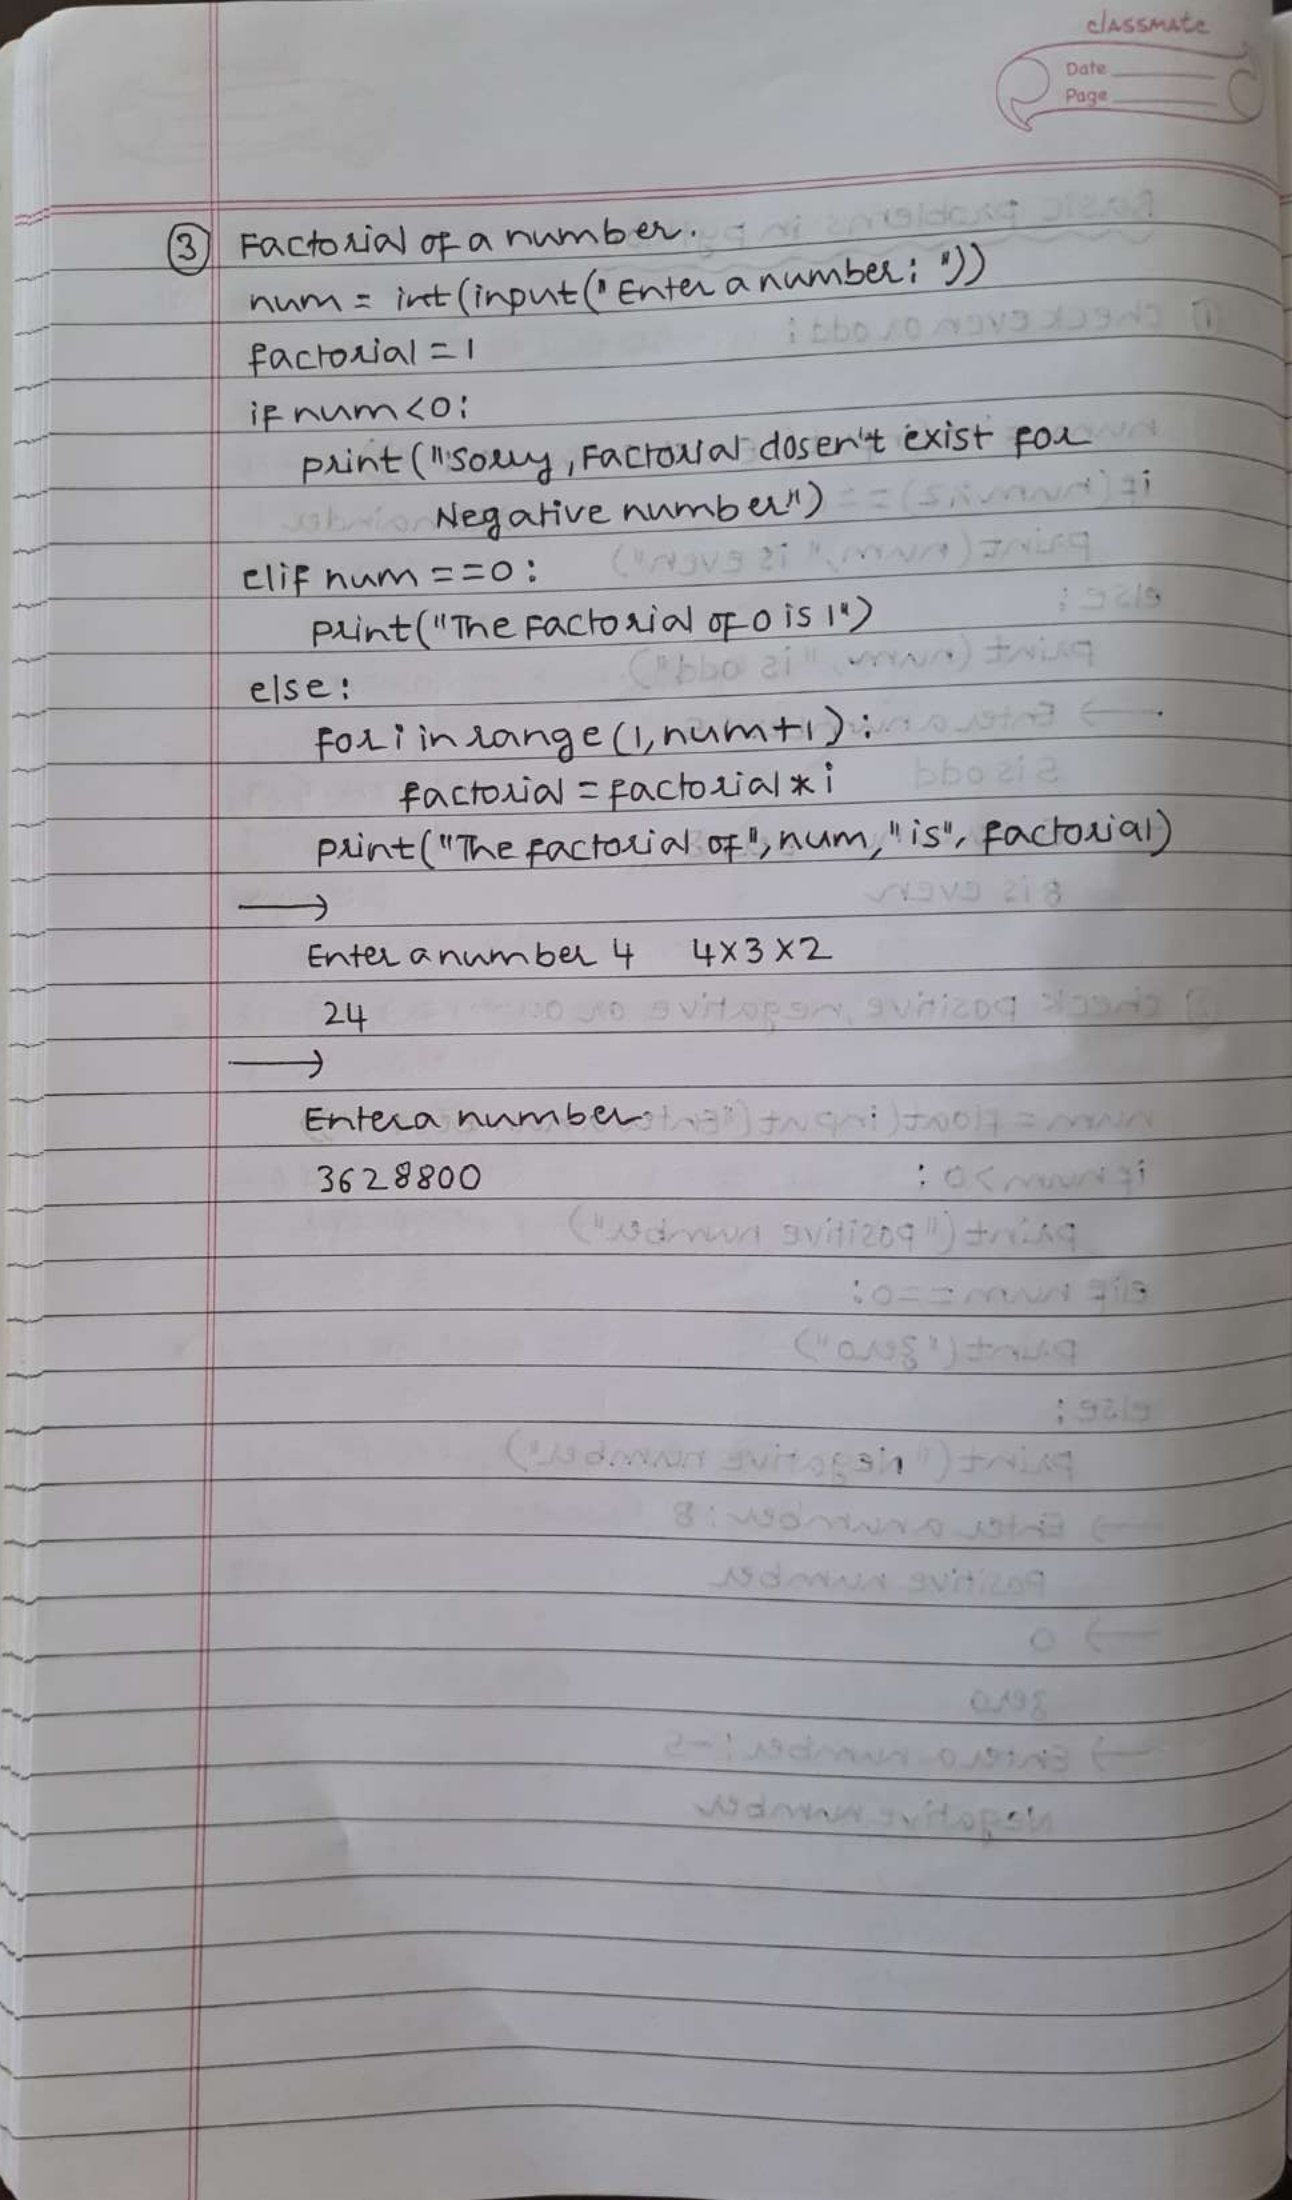 classmate
Date
Page
③ Factorial of a number.
num = int(input("Enter a number: "))
factorial = 1
if num<0:
print("Sorry, Factorial dosen't exist for
Negative number")
elif num ==0:
print("The Factorial of 0 is 1")
else:
for i in range(1, num+1):
factorial = factorial * i
print("The factorial of", num, "is", factorial)
→
Enter a number 4 4x3x2
24
→
Enter a number
3628800